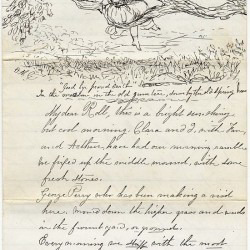 "Just be proud
In the        in the old gum tree, down by the old spring
My dear Roll, this is a bright sunshiny
but cool morning. Clara and I, with Fan
and Arthur, have had our morning ramble
we fixed up the middle mound, with some
fresh stones.
George Perry who has been making a visit
here. mowed down the higher grass and weeds
in the front yard, or grounds.
Every morning we           with the most